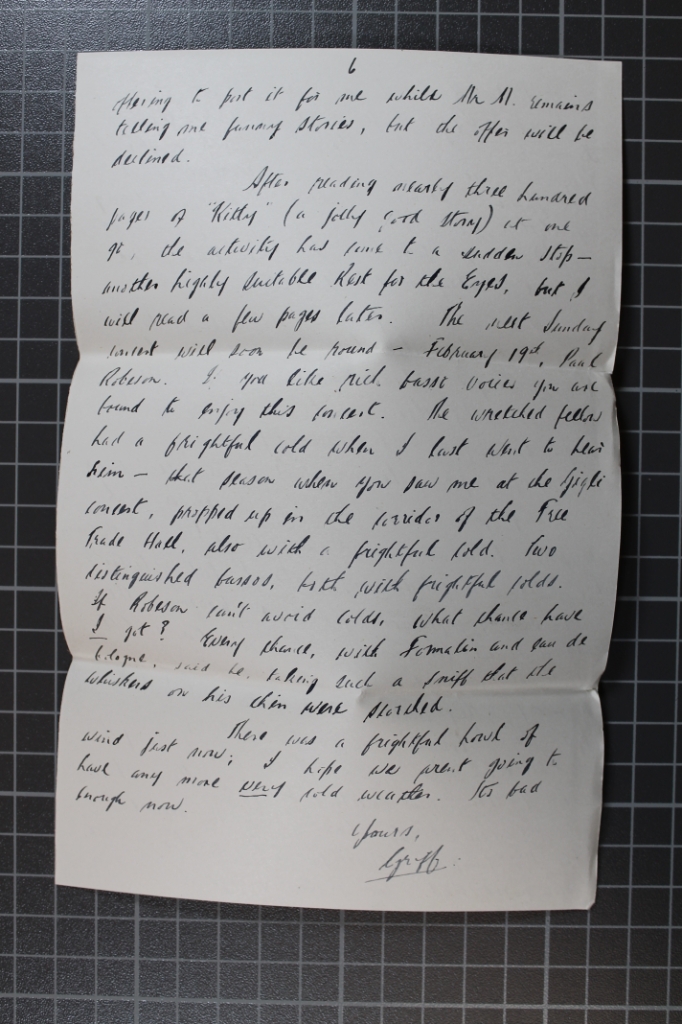 6
offering to post it for me while Mr M. remains
telling me funny stories, but the offer will be
declined.
After reading nearly three hundred
pages of "Kitty" (a jolly good story) at one
go, the activity has come to a sudden stop —
another highly suitable Rest for the Eyes, but I
will read a few pages later. The next Sunday
concert will soon be round — February 19th, Paul
Robeson. If you like rich basso voices you are
bound to enjoy this concert. The wretched fellow
had a frightful cold when I last went to hear
him — that season when you saw me at the Gigli
concert, propped up in the corridor of the Free
Trade Hall, also with a frightful cold. Two
distinguished bassos, both with frightful colds.
If Robeson can't avoid colds, what chance have
I got? Every chance, with Formalin and eau de
Cologne, said he, taking such a sniff that the
whiskers on his chin were scorched.
There was a frightful howl of
wind just now; I hope we aren't going to
have any more very cold weather. Its bad
enough now.
Yours,
Griff.